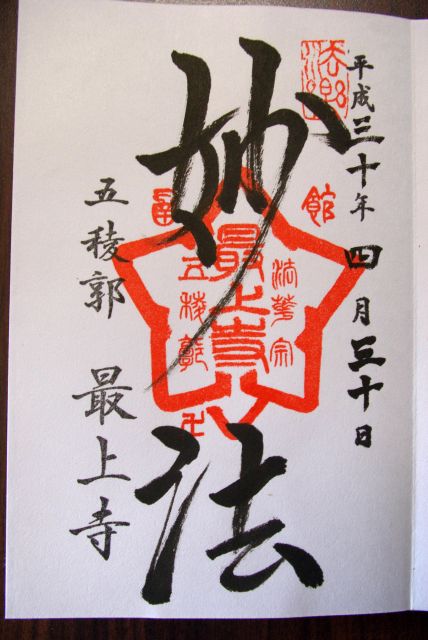 平成三十年 四月三十日
妙法
五稜郭 最上寺
法華宗
最上寺
五稜郭